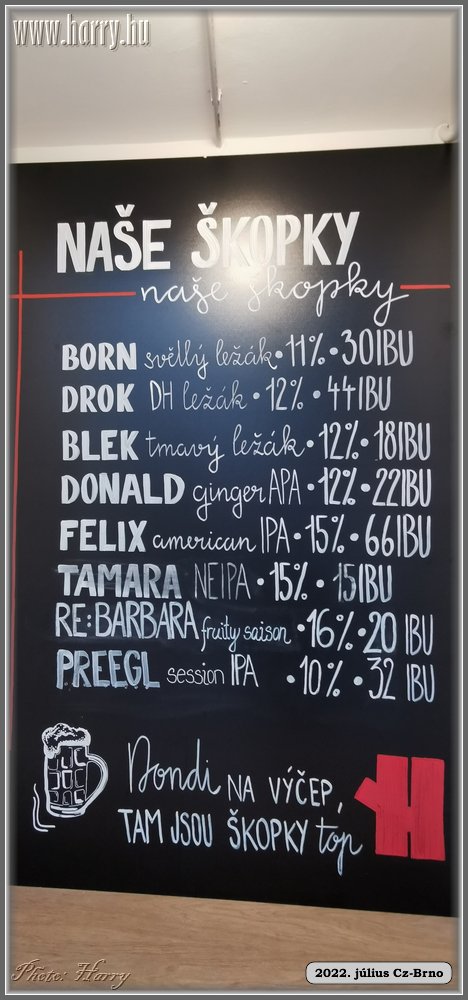 www.harry.hu
NAŠE ŠKOPKY
naše škopky
BORN světlý ležák • 11% • 30IBU
DROK DH ležák • 12% • 44IBU
BLEK tmavý ležák • 12% • 18IBU
DONALD ginger APA • 12% • 22IBU
FELIX american IPA • 15% • 66IBU
TAMARA NEIPA • 15% • 15IBU
RE:BARBARA fruity saison • 16% • 20 IBU
PREEGL session IPA • 10% • 32 IBU
Dondi NA VÝČEP,
TAM JSOU ŠKOPKY top
H
Photo: Harry
2022. július Cz-Brno